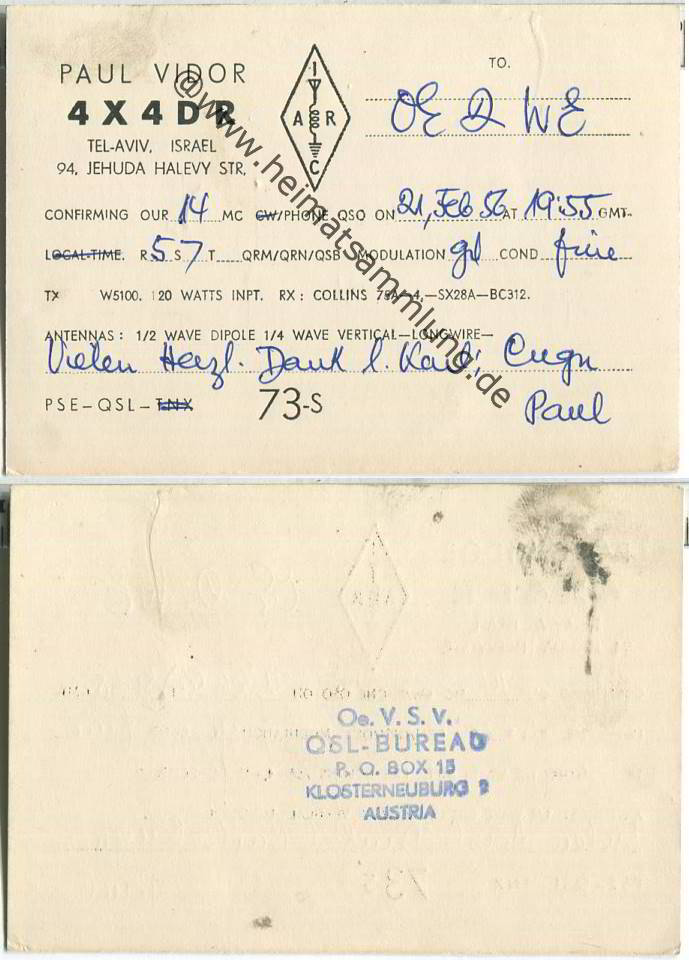 PAUL VIDOR
4X4DR
TEL-AVIV, ISRAEL
94, JEHUDA HALEVY STR,
I
A R
C
TO.
OE Q WE
CONFIRMING OUR 14 MC CW/PHONE QSO ON 21, Feb 56 AT 19:55 GMT-
LOCAL-TIME. R 5 S 7 T QRM/QRN/QSB MODULATION gd COND fine
TX W5100. 120 WATTS INPT. RX: COLLINS 75A-4,-SX28A-BC312.
ANTENNAS: 1/2 WAVE DIPOLE 1/4 WAVE VERTICAL-LONGWIRE-
Vielen Herzl. Dank l. Karli, Cuagn
PSE-QSL-TNX 73-S Paul
@www.heimatsammlung.de
Oe. V. S. V.
QSL-BUREAU
P. O. BOX 15
KLOSTERNEUBURG 2
AUSTRIA